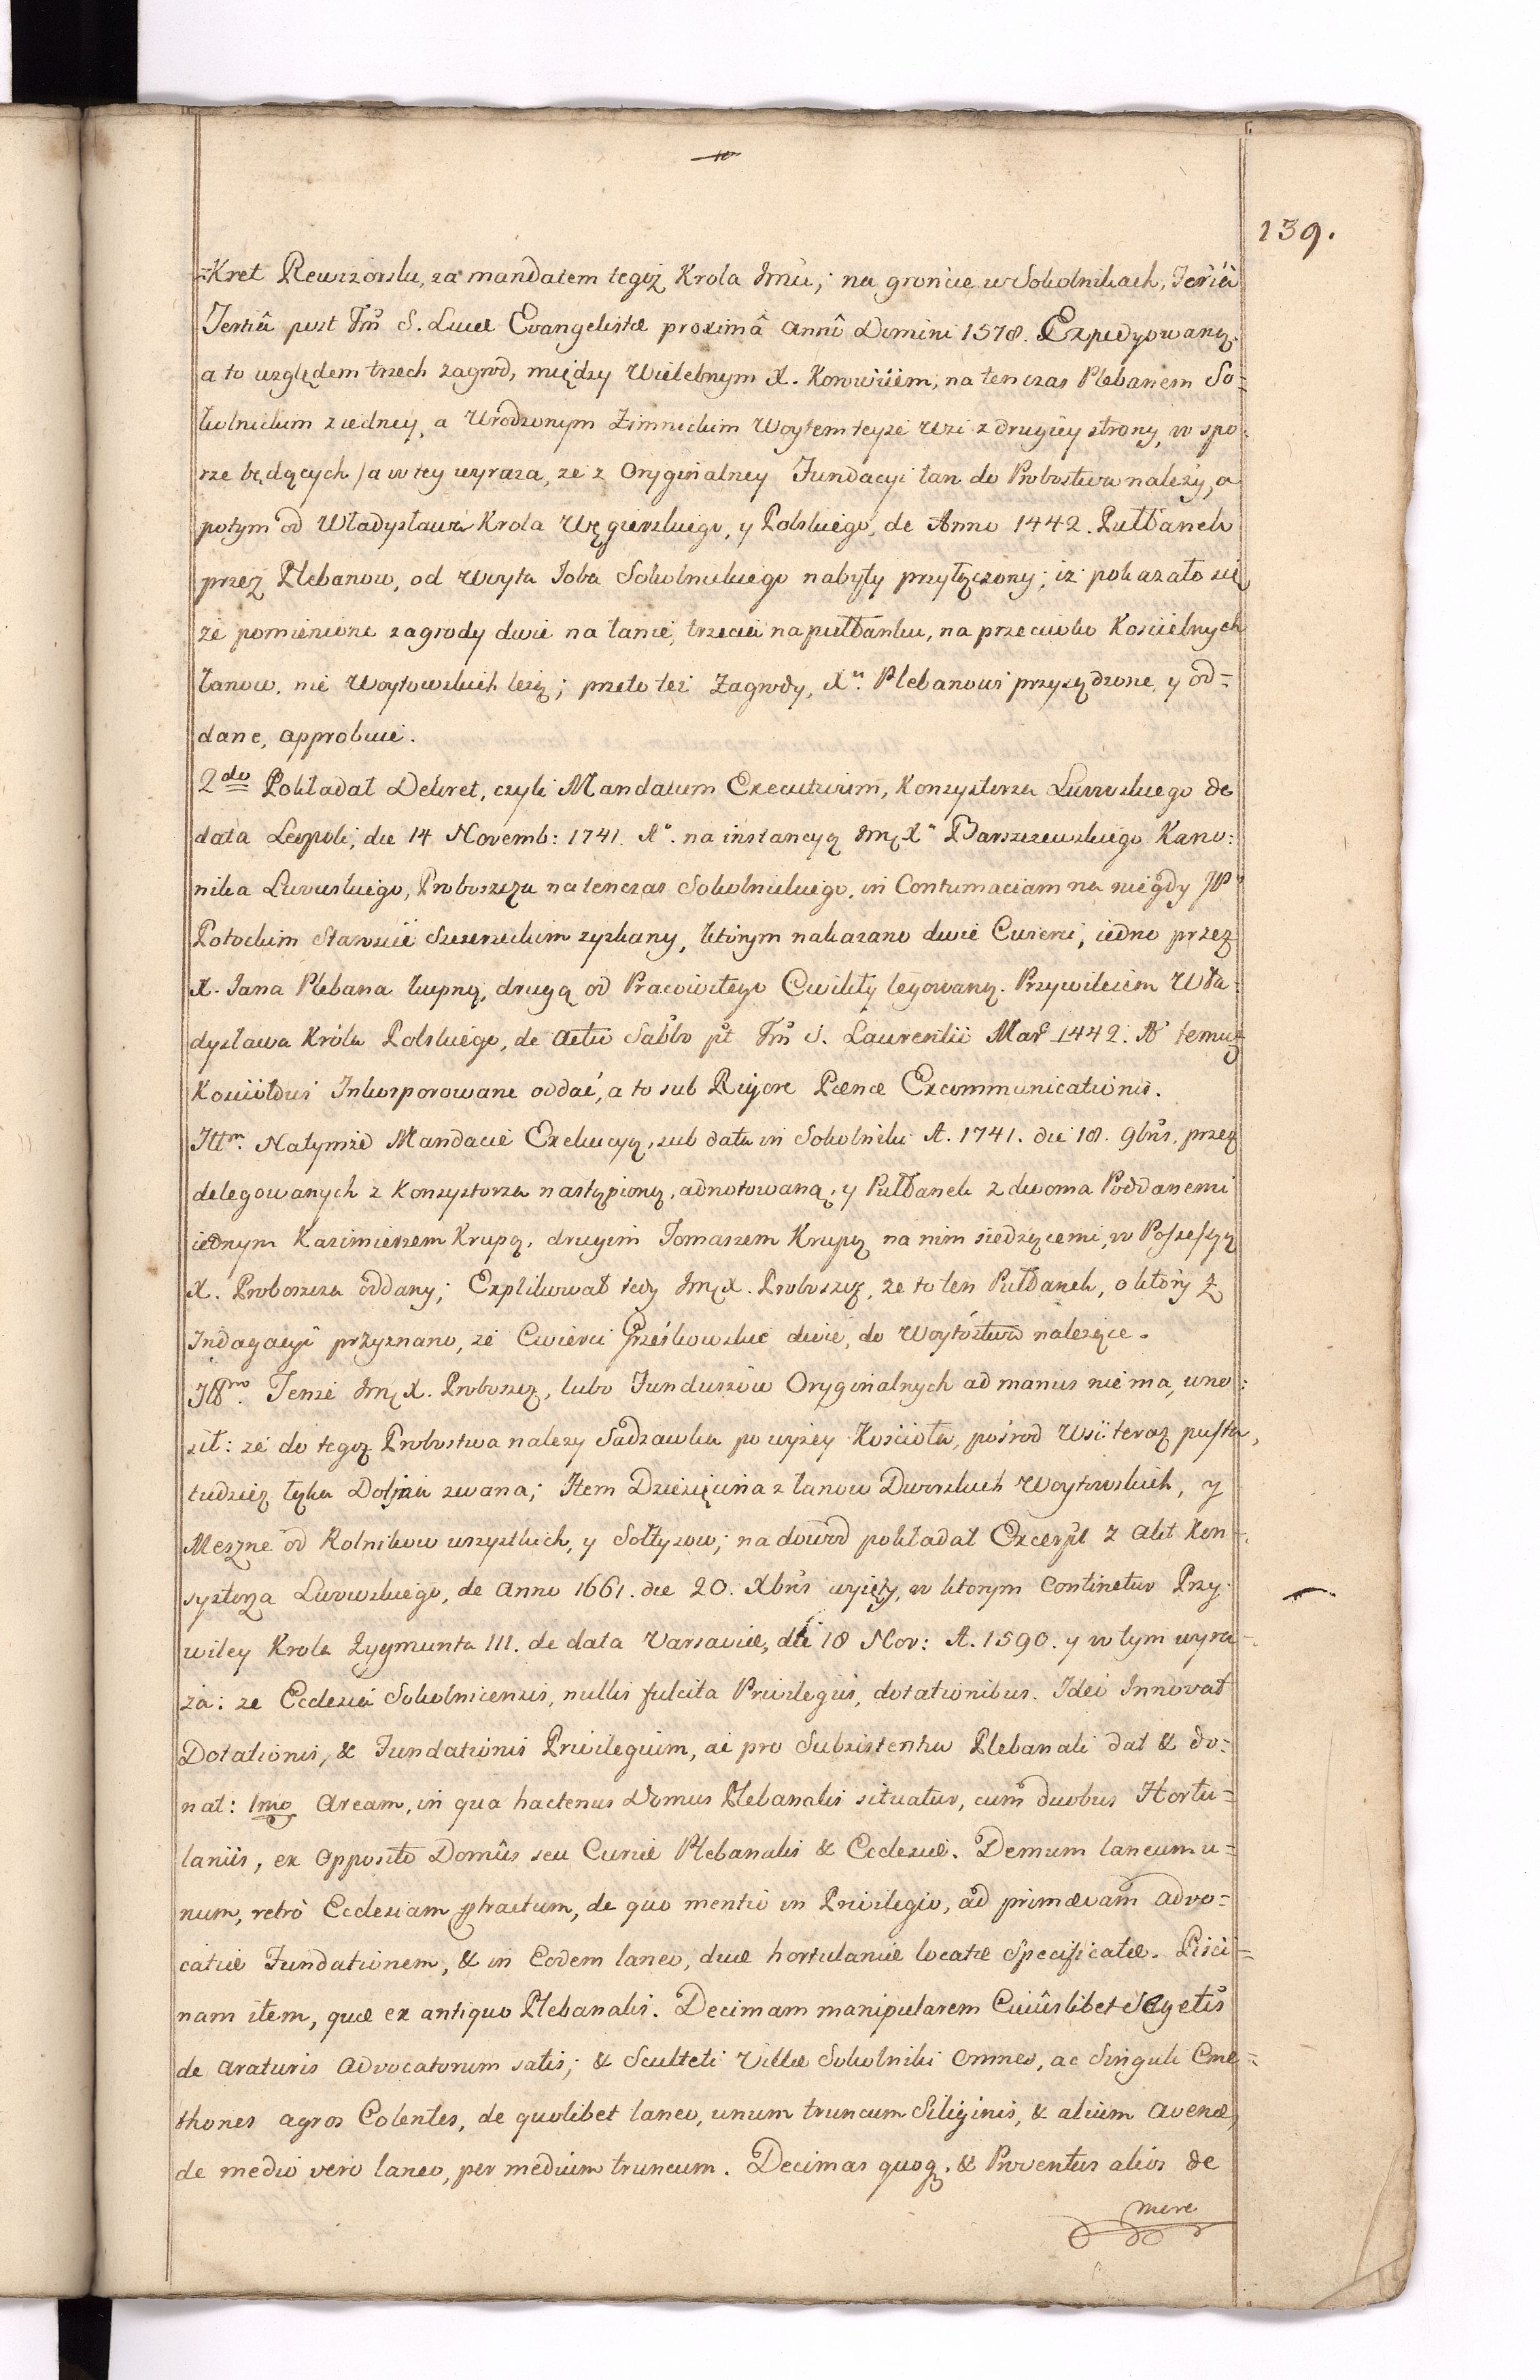 139.
=Kret Rewizorski, za mandatem tegoż Krola Jmci, na groncie w Sokolnikach, Feria
Tertiâ post Fm̃ S. Lucæ Evangelistæ proximâ Annô Domini 1578. Expedyowany.
a to względem trzech zagrod, między Wielebnym X. Korwinem, na ten czas Plebanem So=
kolnickim z iedney, a Urodzonym Zimnickim Woytem teyże Wsi z drugiey strony, w spo=
rze będących / a w tey wyraza, ze z Oryginalney Fundacyi łan do Probostwa nalezy, a
potym od Władysława Krola Węgierskiego, y Polskiego, de Anno 1442. Pułłanek
przez Plebanow, od Woyta Joba Sokolnickiego nabyty przyłączony; iż pokazało się
że pomienione zagrody dwie na łanie, trzecia na pułłanku, na przeciwko Koscielnych
Łanow, nie Woytowskich leżą; przeto też Zagrody, Xu. Plebanowi przysądzone, y od=
dane, approbuie.
2do Pokładał Dekret, czyli Mandatum Executivum, Konsystorza Lwowskiego de
data Leopoli, die 14 Novemb: 1741. Ao. na instancyą JmXa Barszczewskiego Kano:
nika Lwowskiego, Proboszcza na tenczas Sokolnickiego, in Contumaciam na niegdy JP
Potockim Staroscie Szczerzeckim zyskany, którym nakazano dwie Cwierci, iedne przez
X. Jana Plebana kupną, drugą od Pracowitego Cwikły legowaną. Przywileiem Wła=
dysława Króla Polskiego, de Actu Sabbo pt Fm̃ S. Laurentii Mar 1442. Ao temuż
Kosciołowi Inkorporowane oddać, a to sub Rigore Pænæ Excommunicationis.
Ittm. Natymże Mandacie Exekucyą, sub data in Sokolniki A. 1741. die 18. 9bris, przez
delegowanych z Konsystorza nastąpioną, adnotowaną, y Pułłanek z dwoma Poddanemi
iednym Kazimierzem Krupą, drugim Tomaszem Krupą na nim siedzącemi, w Possessyą
X. Proboszcza oddany; Explikował tedy JmX. Proboszcz, że to ten Pułłanek, o który z
Indagacyi przyznano, że Cwierci Grześkowskie dwie, do Woytostwa należące.
Tenże JmX. Proboszcz, lubo Funduszów Oryginalnych ad manus nie ma, wno=
sił: że do tegoż Probostwa nalezy Sadzawka powyżey Kościoła, pośrod Wsi teraz pusta,
tudzież łąka zwana; Item Dziesięcina z łanow Dworskich Woytowskich, y
Meszne od Rolnikow wszystkich, y Sołtysow; na dowod pokładał Excerpt z Akt Kon=
systorza Lwowskiego, de Anno 1661. die 20. Xbris wyięty, w ktorym Continetur Przy=
wiley Krola Zygmunta III. de data Varsaviæ, die 18 Nov: A. 1590. y w tym wyra=
ża: ze Ecclesia Sokolnicensis, nullis fulcita Privilegiis, dotationibus. Ideo Innovat
Dotationis, & Fundationis Privilegium, ac pro Subsistentia Plebanali dat & do=
nat: 1mo Aream, in qua hactenus Domus Plebanalis situatur, cum duobus Hortu=
laniis, ex Opposito Domûs seu Curiæ Plebanalis & Ecclesiæ. Demum laneum u=
num, retrò Ecclesiam ptractum, de quo mentio in Privilegio, ad primævam advo=
catiæ Fundationem, & in Eodem laneo, duæ hortulaniæ locatæ Specificatæ. Pisci=
nam item, quæ ex antiquo Plebanalis. Decimam manipularem Cuiûslibet Segetis
de araturis Advocatorum satis; & Sculteti Villæ Sokolniki Omnes, ac Singuli Cme=
thones agros Colentes, de quolibet laneo, unum truncum Siliginis, & alium Avenæ,
de medio vero laneo, per medium truncum. Decimas quoq. & Proventus alios de
mere